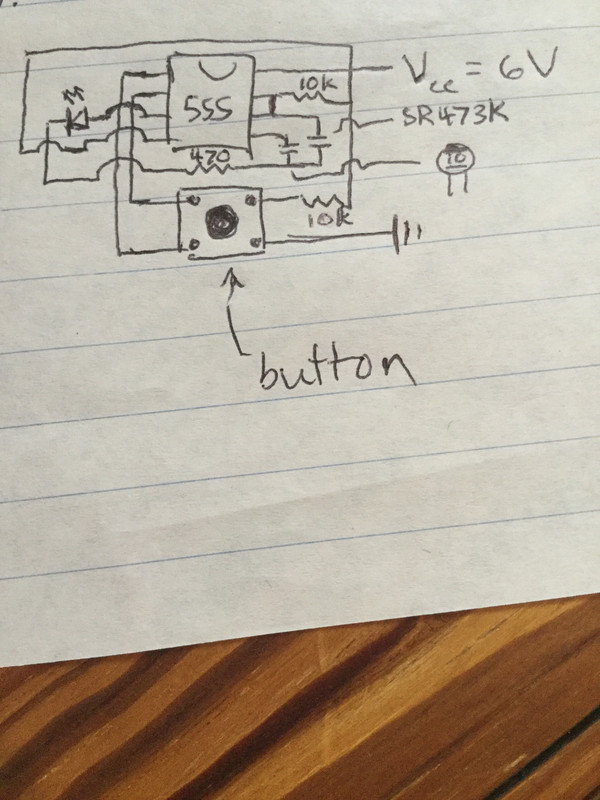 Vcc = 6V
10k
555
SR473K
470
10
10k
button